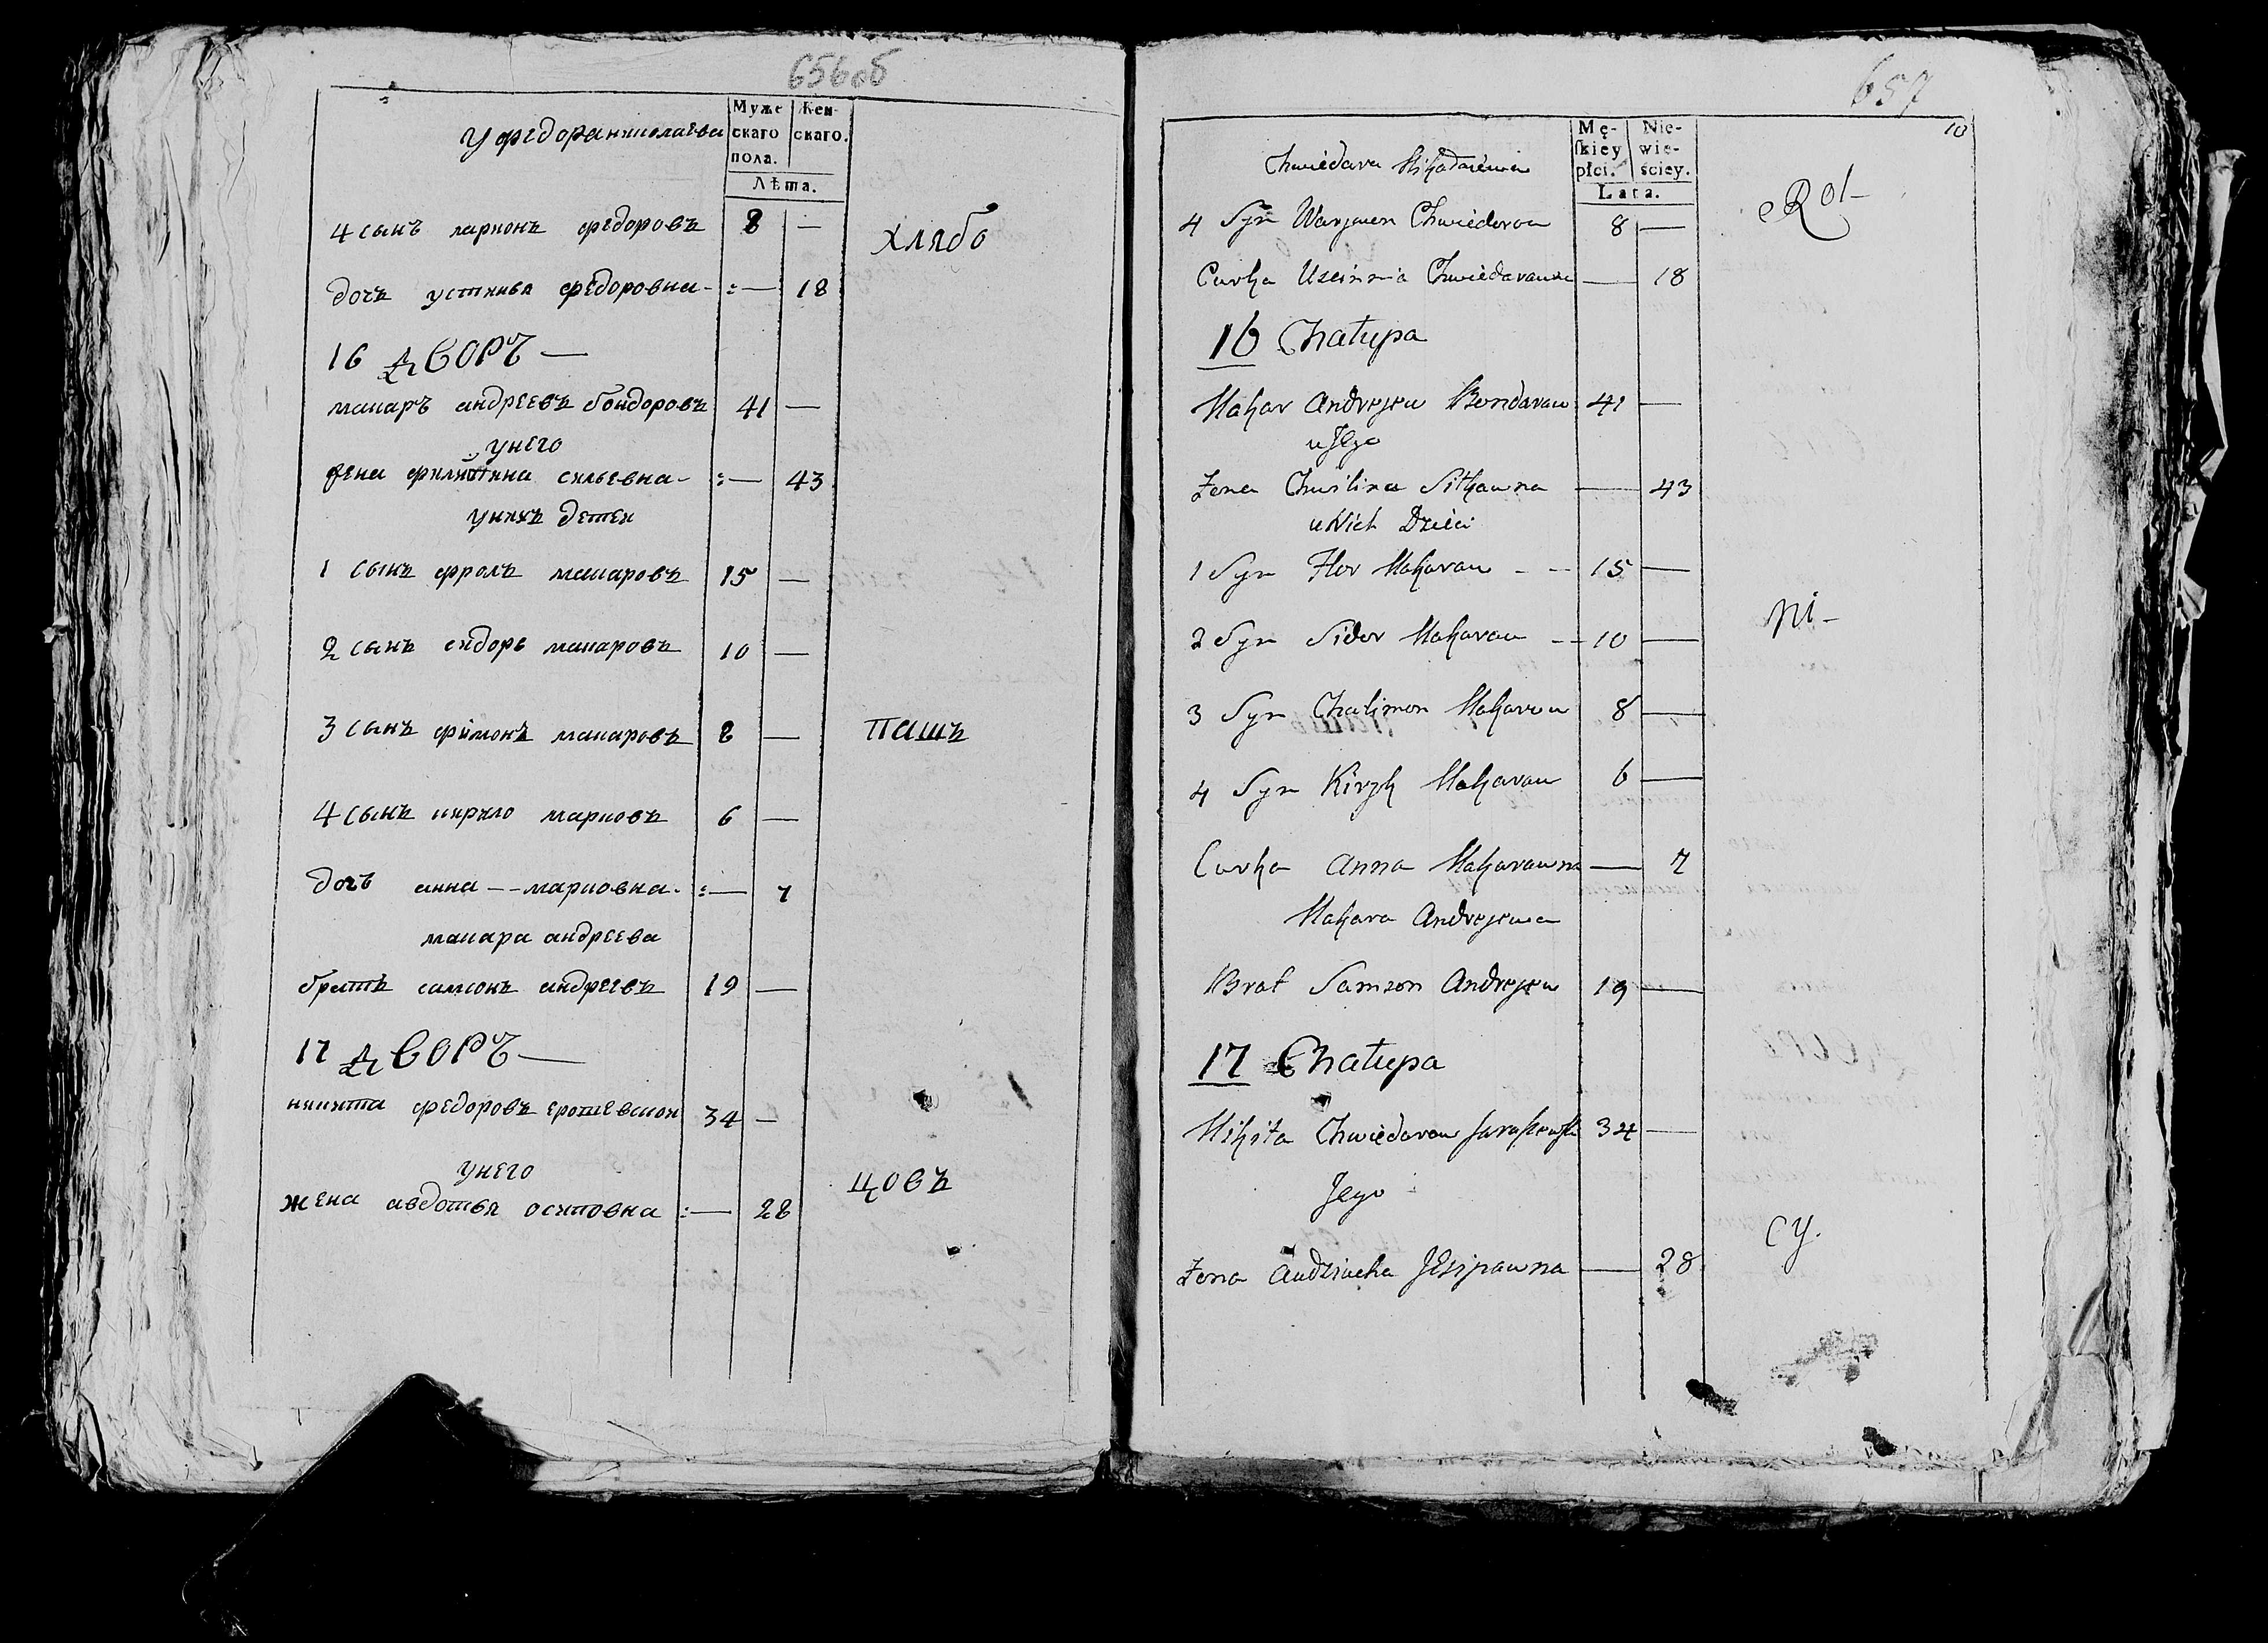 656об
у федора николаева
Муже
скаго
пола.
Жен-
скаго.
Лѣта.
4 сынъ ларионъ федоровъ 8 —
хлябо
дочь устинья федоровна - :— 18
16 дворъ —
макаръ андреевъ бондоровъ 41 —
унего
жена сильевна - :— 43
унихъ детеи
1 сынъ фролъ макаровъ 15 —
2 сынъ сидоръ макаровъ 10 —
3 сынъ фимонъ макаровъ 8 —
пашъ
4 сынъ кирило марковъ 6 —
дочь анна - - марковна - :— 7
макара андреева
братъ самсонъ андреевъ 19 —
17 дворъ —
никита федоровъ ерошевскои 34 —
унего
цовъ
жена авдотья осиповна :— 28
657
10
Chwiedara Mikałaiewa
Mę-
skiey
płci.
Nie-
wie-
ściey.
Lata.
Rol-
4 Syn Chwiedorow 8 —
Curka Uscinnia Chwiedarauna — 18
16 Chałupa
Makar Andrejew Bondaraw 41 —
u Jego
Żona Chwilina — 43
u Nich Dzieci
1 Syn Flor Makaraw - - 15 —
ni-
2 Syn Sidor Makaraw - - 10 —
3 Syn Chalimon Makaraw 8 —
4 Syn Makaraw 6 —
Curka Anna Makarawna — 7
Makara Andrejewa
Brat Samson Andrejew 19 —
17 Chałupa
Mikita Chwiedaraw 34 —
Jego
cy.
Żona Audziucha Jesipawna — 28